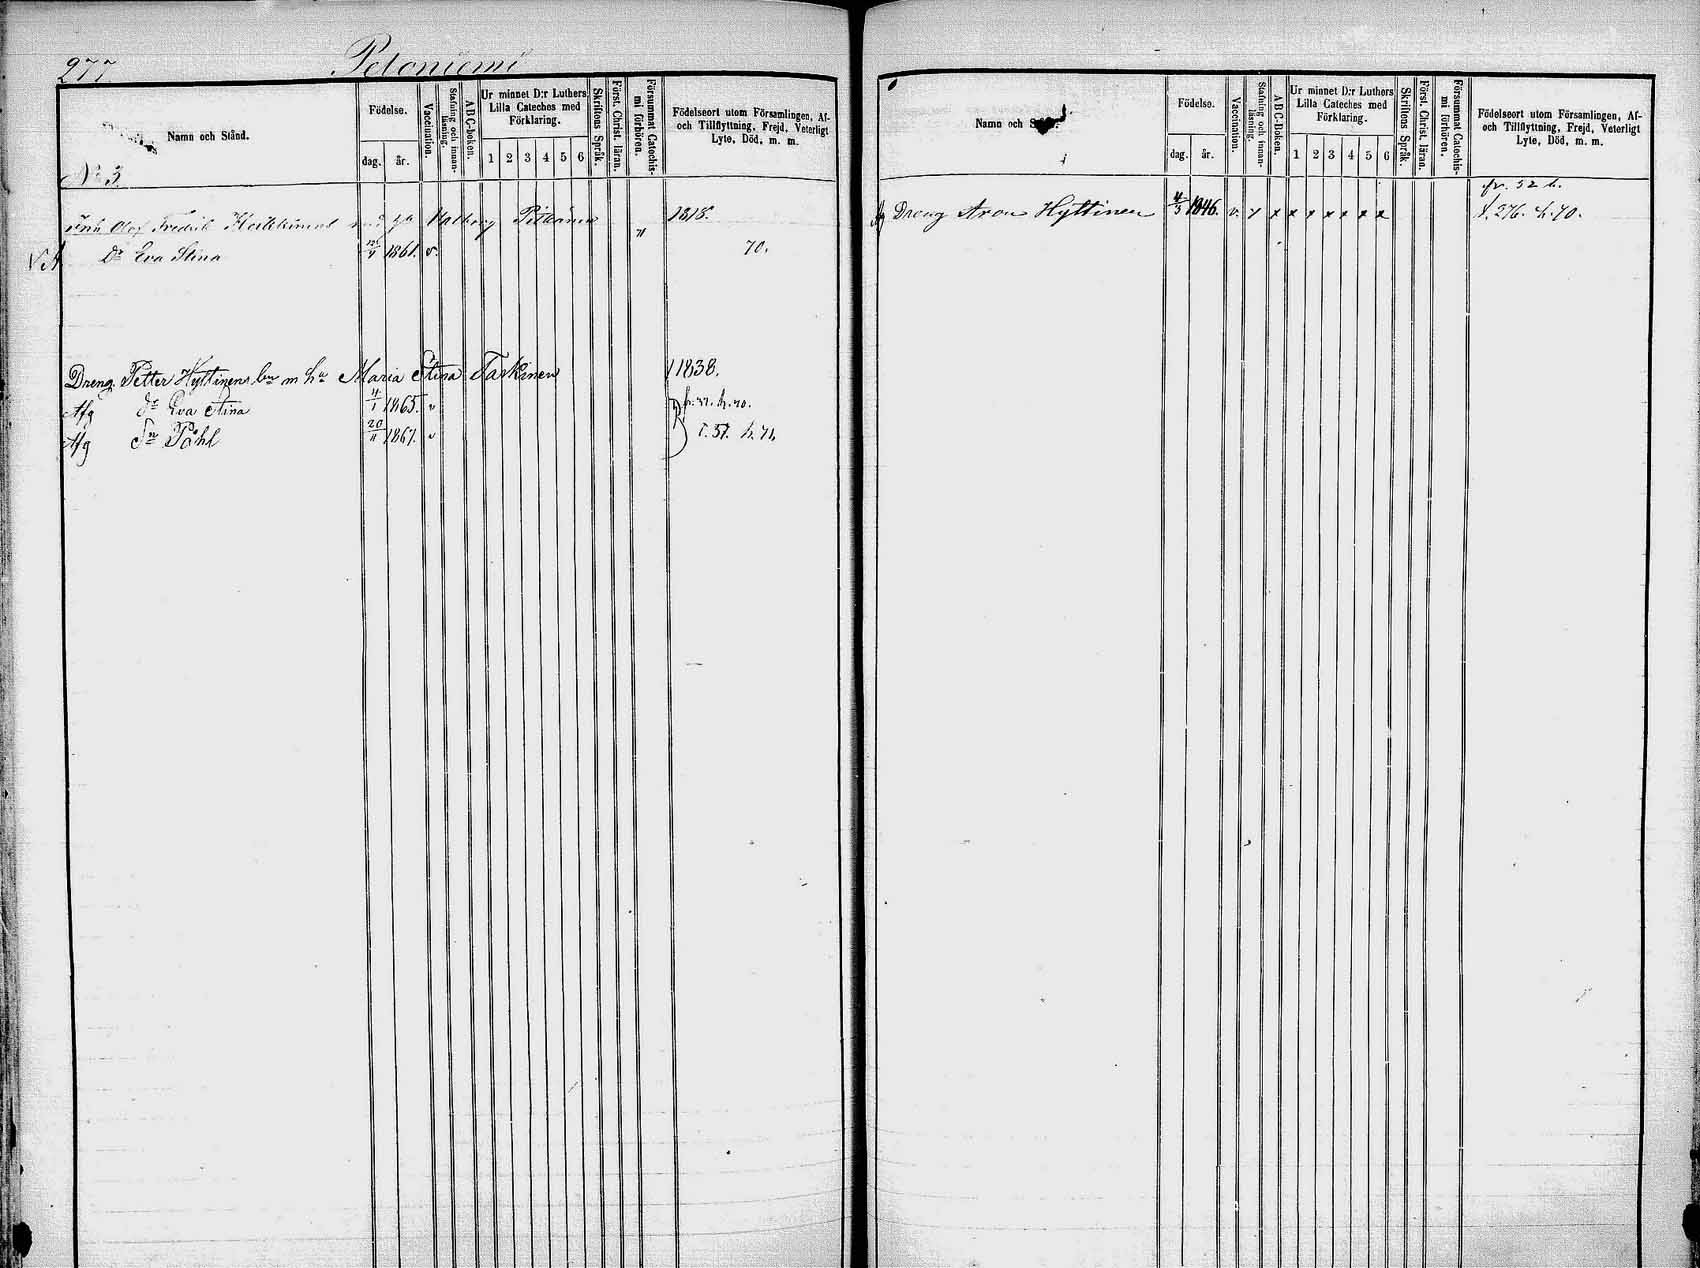 277 Petoniemi
Namn och Stånd.
Födelse.
dag. år.
Vaccination.
Stafning och innan-läsning.
ABC-boken.
Ur minnet D:r Luthers
Lilla Cateches med
Förklaring.
1 2 3 4 5 6
Skriftens Språk.
Först. Christ. läran.
Försummat Catechis-mi förhören.
Födelseort utom Församlingen, Af-
och Tillflyttning, Frejd, Veterligt
Lyte, Död, m. m.
No 3.
Inh. Olof Fredrik Heikkinens Walborg Pitkänen 1818.
Dr Eva Stina 1861. v. 70.
Dreng. Petter Hyttinens bn m hu Maria Stina Tarkinen 1838.
Afg dr Eva Stina 4/1 1865. v fr. 57. h. 70.
Afg Sn Påhl 20/11 1867. v t. 57. h. 71.
Namn och
Födelse.
dag. år.
Vaccination.
Stafning och innan-läsning.
ABC-Boken.
Ur minnet D:r Luthers
Lilla Cateches med
Förklaring.
1 2 3 4 5 6
Skriftens Språk.
Först. Christ. läran.
Försummat Catechis-mi förhören.
Födelseort utom Församlingen, Af-
och Tillflyttning, Frejd, Veterligt
Lyte, Död, m. m.
fr. 52 h.
Afg Dreng Aron Hyttinen 4/3 1846. v. x x x x x x x x t. 276. h. 70.